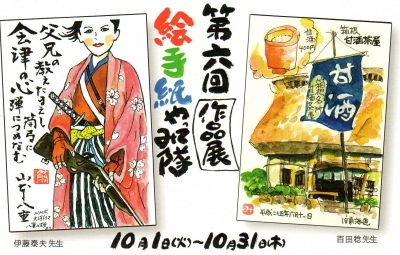 第六回 作品展
絵手紙やってみ隊
父兄の
教えたまいし
会津の心
弾につめなむ
山本八重
箱根
甘酒茶屋
甘酒
400円
甘酒
伊藤泰夫先生
百田稔先生
10月1日(火)～10月31日(木)